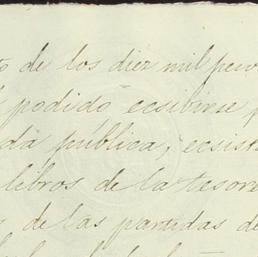 to de los diez mil pesos
podido ecsibirse p
da pública, ecsist
libros de la tesore
s de las partidas de